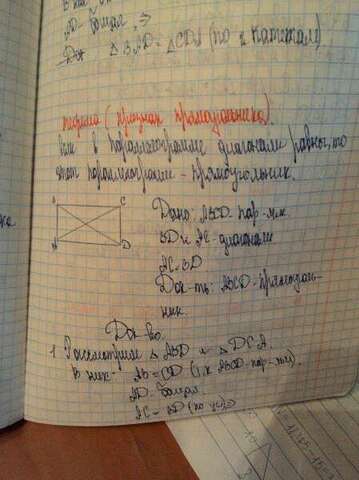 AD - общая, ⇒
Док △BAD = △CDA (по 2 катетам)
теорема (признак прямоугольника).
Если в параллелограмме диагонали равны, то
этот параллелограмм - прямоугольник.
B C
A D
Дано: ABCD - пар-мм
BD и AC - диагонали
AC = BD
Док-ть: ABCD - прямоуголь-
ник.
Док-во.
1. Рассмотрим △ABD и △DCA.
В них - AB = CD (т.к ABCD - пар-мм).
AD - общая
AC = BD (по усл) ⇒